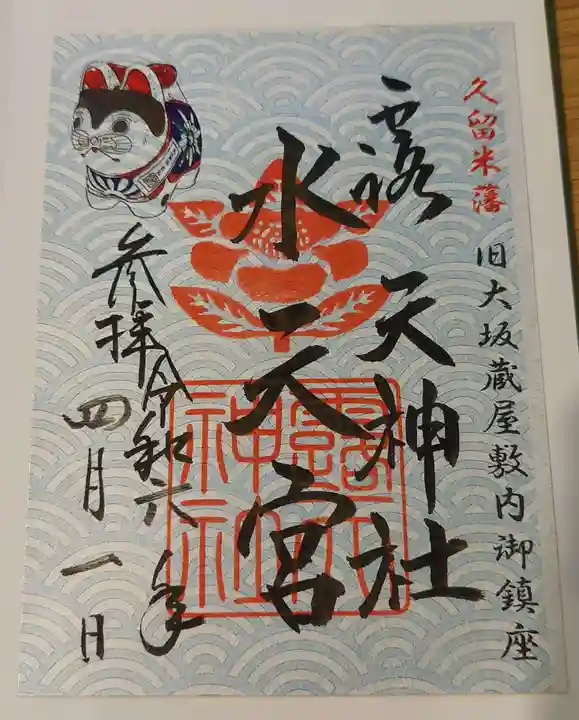 久留米藩 旧大坂蔵屋敷内御鎮座
露天神社
水天宮
参拝令和六年
四月一日
露天
神社